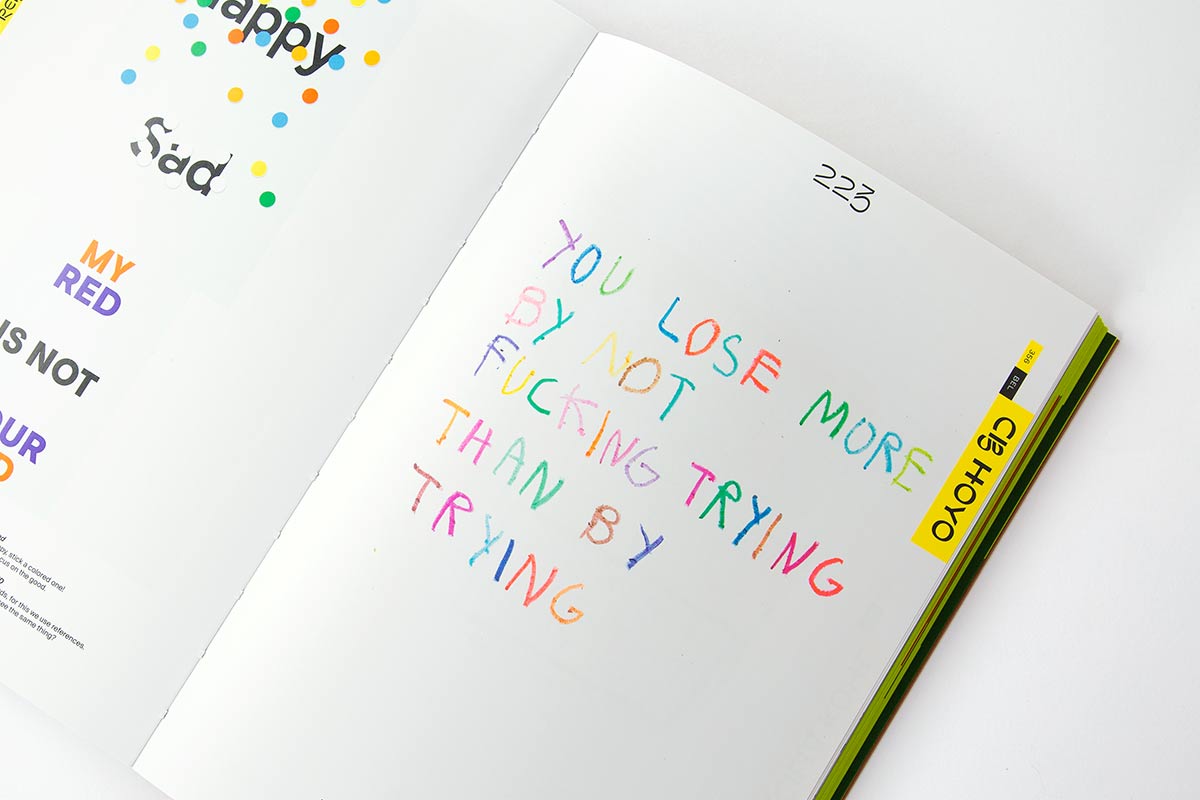 Happy
Sad
MY
RED
IS NOT
OUR
py, stick a colored one!
cus on the good.
ds, for this we use references.
see the same thing?
223
YOU LOSE MORE
BY NOT
FUCKING TRYING
THAN BY
TRYING
356
BEL
CB HOYO